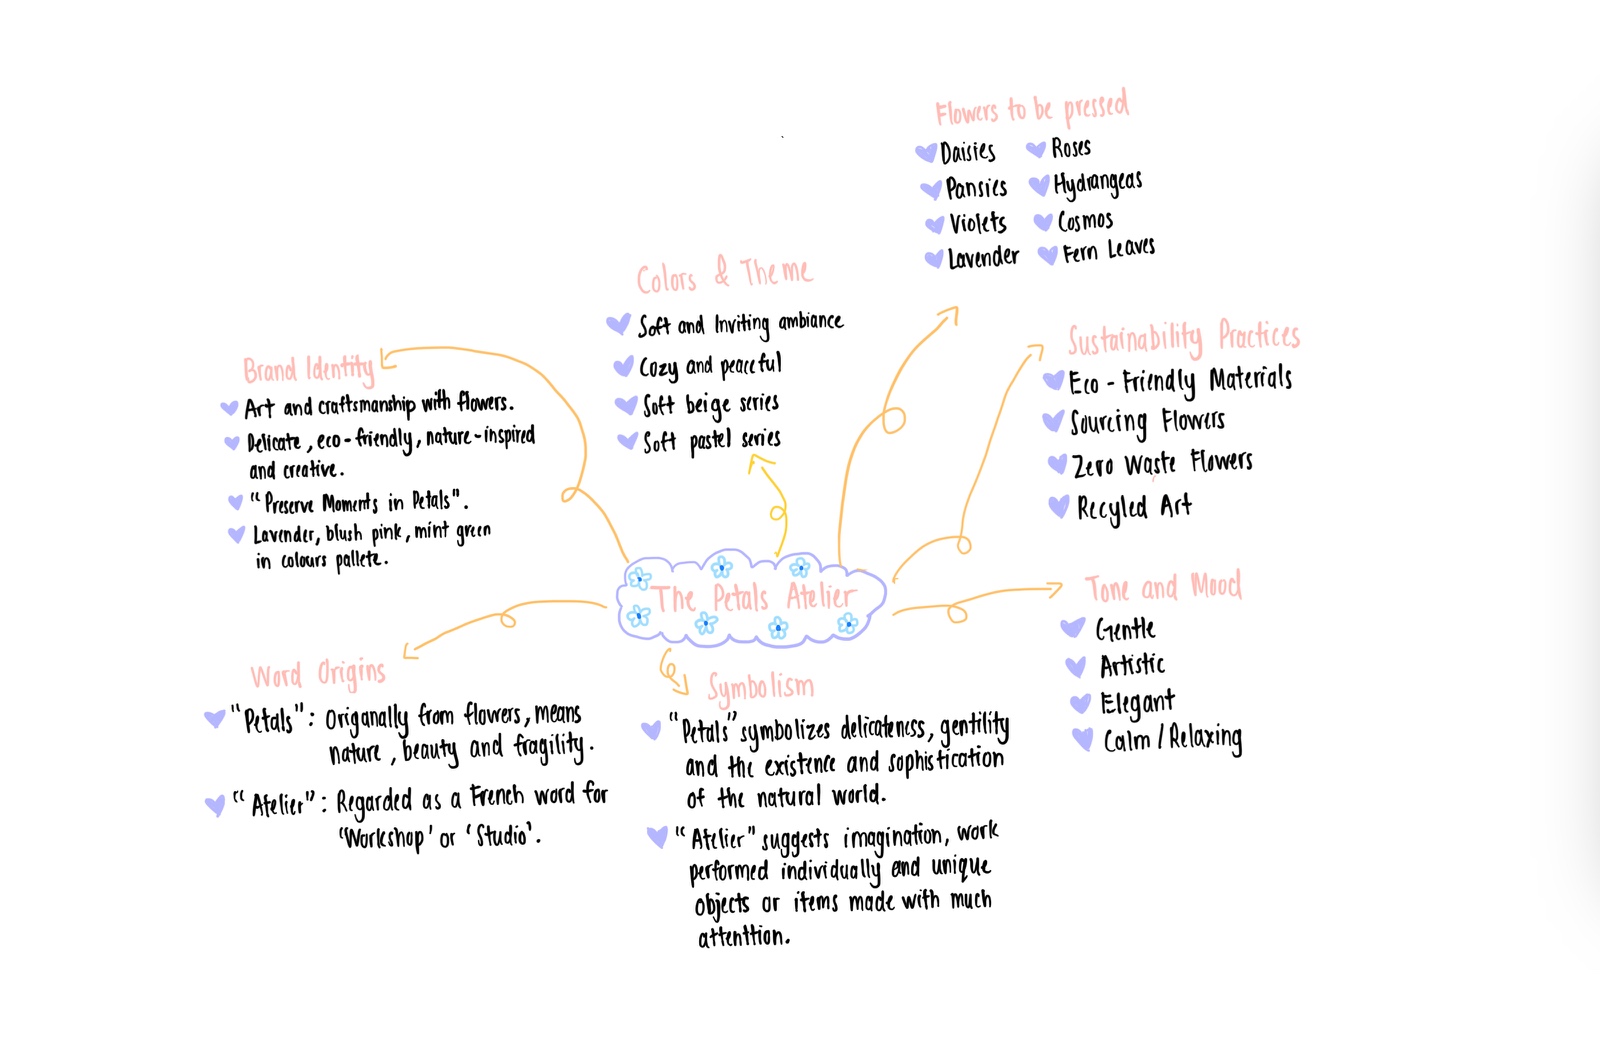 The Petals Atelier
Brand Identity
Art and craftsmanship with flowers.
Delicate, eco-friendly, nature-inspired
and creative.
"Preserve Moments in Petals".
Lavender, blush pink, mint green
in colours pallete.
Colors & Theme
Soft and Inviting ambiance
Cozy and peaceful
Soft beige series
Soft pastel series
Flowers to be pressed
Daisies
Pansies
Violets
Lavender
Roses
Hydrangeas
Cosmos
Fern Leaves
Sustainability Practices
Eco-Friendly Materials
Sourcing Flowers
Zero Waste Flowers
Recyled Art
Tone and Mood
Gentle
Artistic
Elegant
Calm/Relaxing
Word Origins
"Petals": Origanally from flowers, means
nature, beauty and fragility.
"Atelier": Regarded as a French word for
'Workshop' or 'Studio'.
Symbolism
"Petals" symbolizes delicateness, gentility
and the existence and sophistication
of the natural world.
"Atelier" suggests imagination, work
performed individually and unique
objects or items made with much
attenttion.